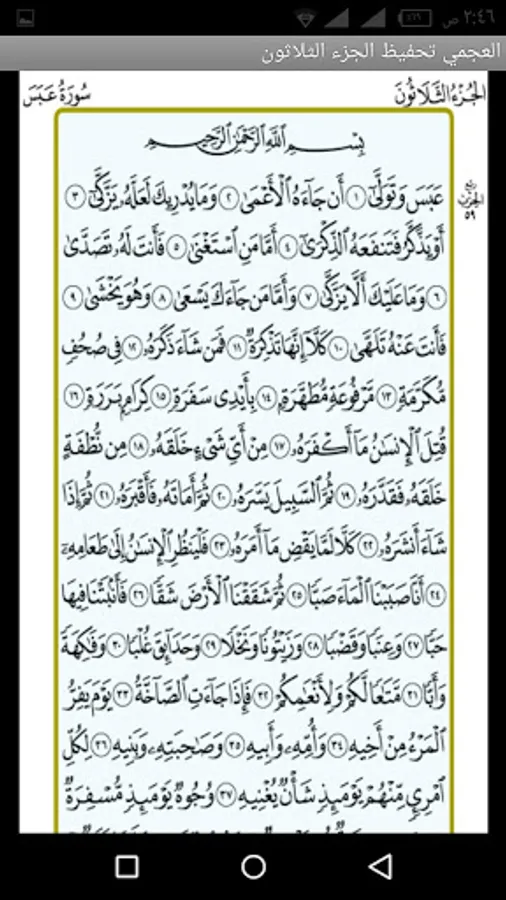 ٢:٤٦ ص
العجمي تحفيظ الجزء الثلاثون
الجُزْءُ الثَّلَاثُونَ سُورَةُ عَبَسَ
بِسْمِ ٱللَّهِ ٱلرَّحْمَٰنِ ٱلرَّحِيمِ
عَبَسَ وَتَوَلَّىٰٓ ١ أَن جَآءَهُ ٱلْأَعْمَىٰ ٢ وَمَا يُدْرِيكَ لَعَلَّهُۥ يَزَّكَّىٰٓ ٣
الحزب ٥٩
أَوْ يَذَّكَّرُ فَتَنفَعَهُ ٱلذِّكْرَىٰٓ ٤ أَمَّا مَنِ ٱسْتَغْنَىٰ ٥ فَأَنتَ لَهُۥ تَصَدَّىٰ
٦ وَمَا عَلَيْكَ أَلَّا يَزَّكَّىٰ ٧ وَأَمَّا مَن جَآءَكَ يَسْعَىٰ ٨ وَهُوَ يَخْشَىٰ ٩
فَأَنتَ عَنْهُ تَلَهَّىٰ ١٠ كَلَّآ إِنَّهَا تَذْكِرَةٌ ١١ فَمَن شَآءَ ذَكَرَهُۥ ١٢ فِى صُحُفٍ
مُّكَرَّمَةٍ ١٣ مَّرْفُوعَةٍ مُّطَهَّرَةٍۭ ١٤ بِأَيْدِى سَفَرَةٍ ١٥ كِرَامٍۭ بَرَرَةٍ ١٦
قُتِلَ ٱلْإِنسَٰنُ مَآ أَكْفَرَهُۥ ١٧ مِنْ أَىِّ شَىْءٍ خَلَقَهُۥ ١٨ مِن نُّطْفَةٍ
خَلَقَهُۥ فَقَدَّرَهُۥ ١٩ ثُمَّ ٱلسَّبِيلَ يَسَّرَهُۥ ٢٠ ثُمَّ أَمَاتَهُۥ فَأَقْبَرَهُۥ ٢١ ثُمَّ إِذَا
شَآءَ أَنشَرَهُۥ ٢٢ كَلَّا لَمَّا يَقْضِ مَآ أَمَرَهُۥ ٢٣ فَلْيَنظُرِ ٱلْإِنسَٰنُ إِلَىٰ طَعَامِهِۦٓ
٢٤ أَنَّا صَبَبْنَا ٱلْمَآءَ صَبًّا ٢٥ ثُمَّ شَقَقْنَا ٱلْأَرْضَ شَقًّا ٢٦ فَأَنۢبَتْنَا فِيهَا
حَبًّا ٢٧ وَعِنَبًا وَقَضْبًا ٢٨ وَزَيْتُونًا وَنَخْلًا ٢٩ وَحَدَآئِقَ غُلْبًا ٣٠ وَفَٰكِهَةً
وَأَبًّا ٣١ مَّتَٰعًا لَّكُمْ وَلِأَنْعَٰمِكُمْ ٣٢ فَإِذَا جَآءَتِ ٱلصَّآخَّةُ ٣٣ يَوْمَ يَفِرُّ
ٱلْمَرْءُ مِنْ أَخِيهِ ٣٤ وَأُمِّهِۦ وَأَبِيهِ ٣٥ وَصَٰحِبَتِهِۦ وَبَنِيهِ ٣٦ لِكُلِّ
ٱمْرِئٍ مِّنْهُمْ يَوْمَئِذٍ شَأْنٌ يُغْنِيهِ ٣٧ وُجُوهٌ يَوْمَئِذٍ مُّسْفِرَةٌ